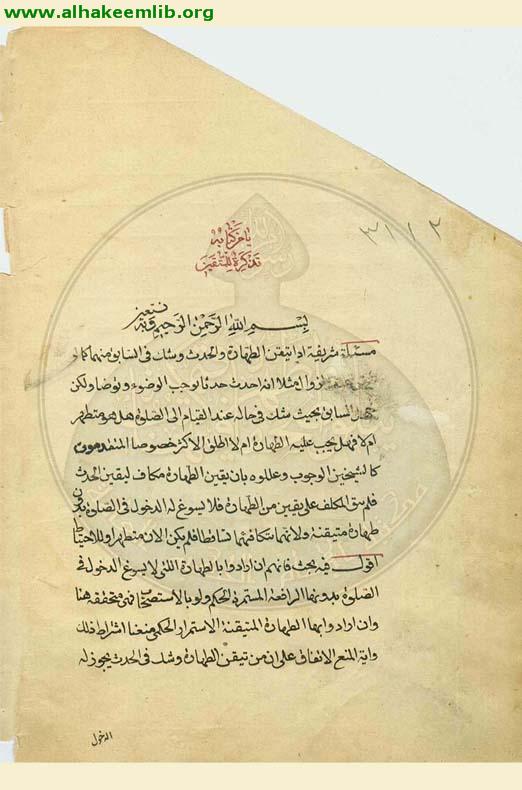 www.alhakeemlib.org
٣١١٢
يا من كتابه
تذكرة للمتقين
بسم الله الرحمن الرحيم وبه نستعين
مسئلة شريفة اذا تيقن الطهارة والحدث وشك في السابق منهما كما لو
تيقن عند الزوال مثلا انه احدث حدثا يوجب الوضوء وتوضا ولكن
جهل السابق بحيث شك في حاله عند القيام الى الصلوة هل هو متطهر
ام لا فهل يجب عليه الطهارة ام لا اطلق الاكثر خصوصا المتقدمون
كالشيخين الوجوب وعللوه بان يقين الطهارة مكاف ليقين الحدث
فلم يبق المكلف على يقين من الطهارة فلا يسوغ له الدخول في الصلوة بدون
طهارة متيقنة ولانهما بتكافهما تساقطا فلم يكن الان متطهرا وللاحتياط
اقول فيه بحث فانهم ان ارادوا بالطهارة اللتي لا يسوغ الدخول في
الصلوة بدونها الرافعة المستمرة الحكم ولو بالاستصحاب فهي متحققة هنا
وان ارادوا بها الطهارة المتيقنة الاستمرار الحكم منعنا اشتراط ذلك
واية المنع الاتفاق على ان من تيقن الطهارة وشك في الحدث يجوز له
الدخول